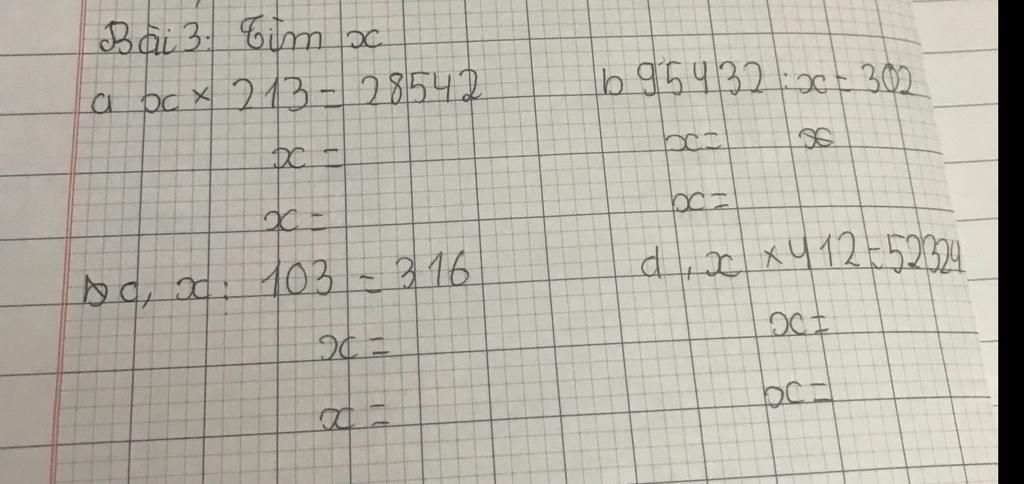 Bài 3: Tìm x
a x × 213 = 28542 b 95432 : x = 302
x = x = x
x = x =
b c, x : 103 = 316 d, x × 412 = 52324
x = x =
x = x =